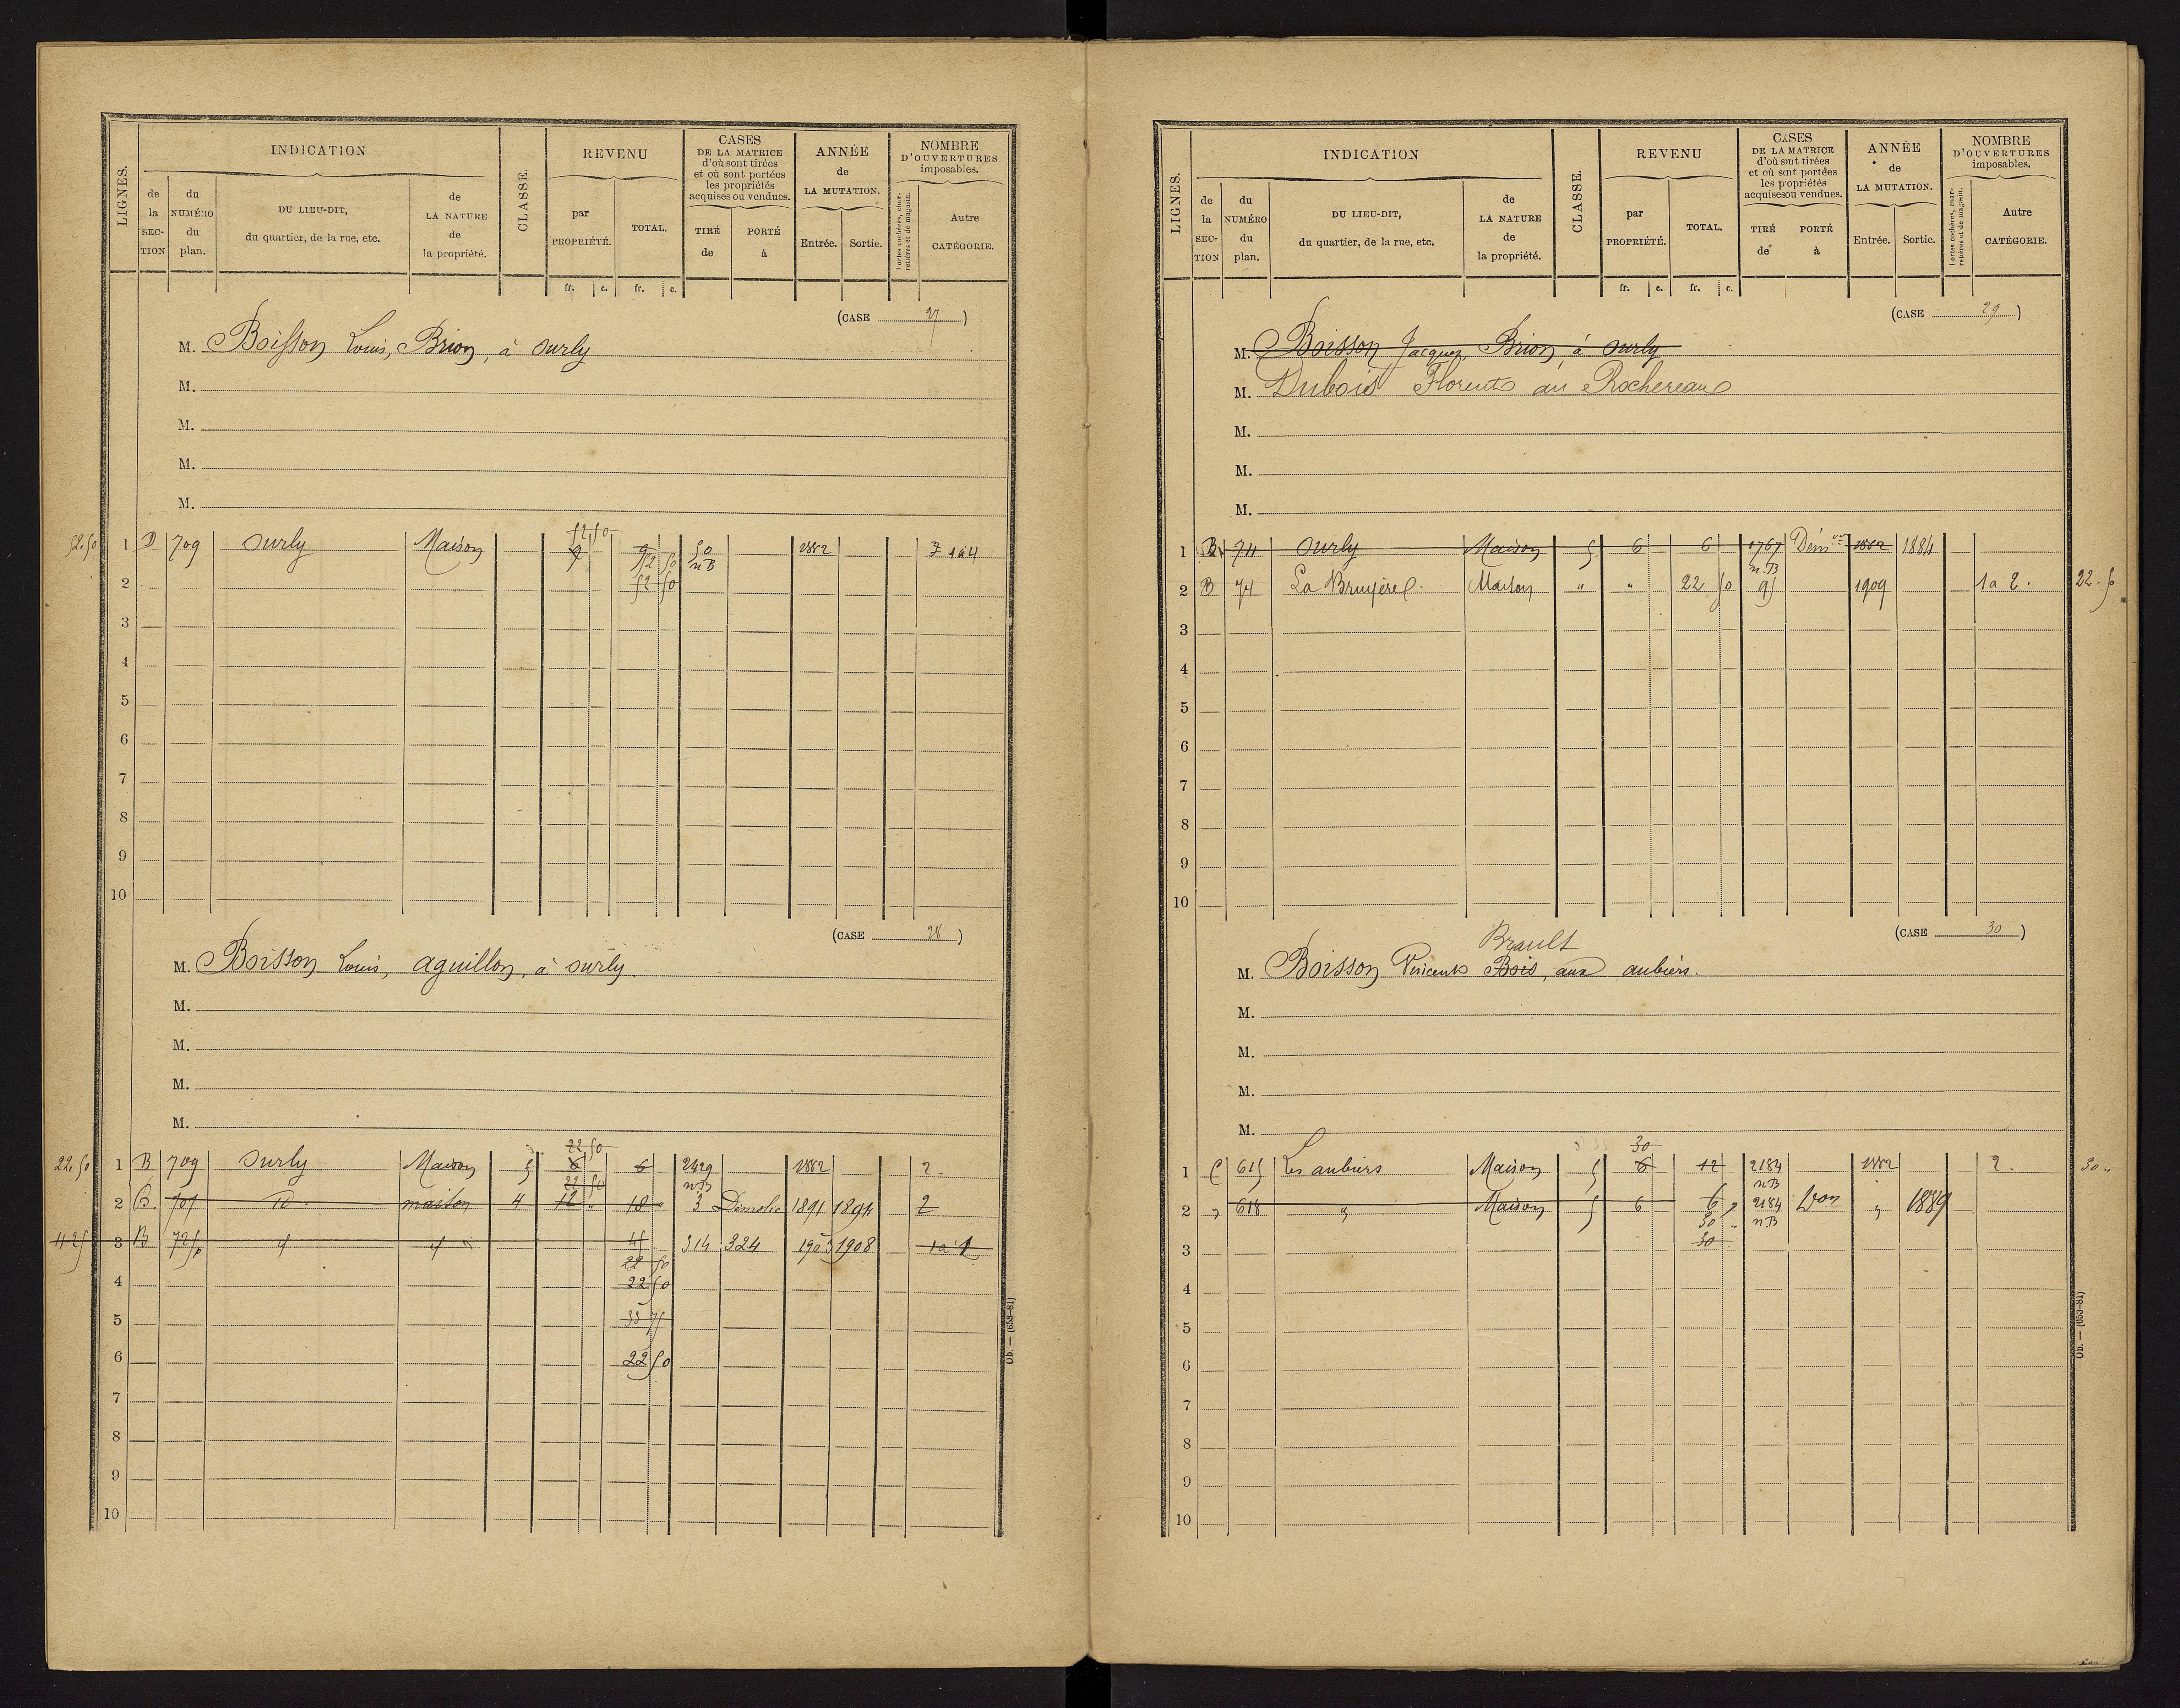 LIGNES.
INDICATION
de la SECTION
du NUMÉRO du plan.
DU LIEU-DIT, du quartier, de la rue, etc.
de LA NATURE de la propriété.
CLASSE.
REVENU
par PROPRIÉTÉ.
TOTAL.
CASES DE LA MATRICE d'où sont tirées et où sont portées les propriétés acquises ou vendues.
TIRÉ de
PORTÉ à
ANNÉE de LA MUTATION.
Entrée. Sortie.
NOMBRE D'OUVERTURES imposables.
Portes cochères, charretières et de magasin.
Autre CATÉGORIE.
fr. c. fr. c.
(CASE 27)
M. Boisson Louis, Brion, à Surly
M.
M.
M.
M.
52.50
52.50 1 D 709 Surly Maison 9 9 50 1882 7 1a4
52 50 nB
2 52 50
3
4
5
6
7
8
9
10
(CASE 28)
M. Boisson Louis, aguillon, à Surly.
M.
M.
M.
M.
22 50
22.50 1 B 709 Surly Maison 5 6 6 2429 1882 2
22 50 nB
2 B. 707 id maison 4 12 " 18 " 3 Démolie 1891 1894 2
3 B 725p 45 314 324 1903 1908 1a1
22 50
4 22 50
5 33 75
6 22 50
7
8
9
10
Ob. — (653-81)
LIGNES.
INDICATION
de la SECTION
du NUMÉRO du plan.
DU LIEU-DIT, du quartier, de la rue, etc.
de LA NATURE de la propriété.
CLASSE.
REVENU
par PROPRIÉTÉ.
TOTAL.
CASES DE LA MATRICE d'où sont tirées et où sont portées les propriétés acquises ou vendues.
TIRÉ de
PORTÉ à
ANNÉE de LA MUTATION.
Entrée. Sortie.
NOMBRE D'OUVERTURES imposables.
Portes cochères, charretières et de magasin.
Autre CATÉGORIE.
fr. c. fr. c.
(CASE 29)
M. Boisson Jacques, Brion, à Surly
M. Dubois Florent au Rochereau
M.
M.
M.
1 B 74 Surly Maison 5 6 6 1767 Dém on 1882 1884
nB
2 B 74 La Bruyère Maison " " 22 50 95 1909 1a2. 22.50
3
4
5
6
7
8
9
10
(CASE 30)
Brault
M. Boisson Vincent Bois, aux aubiers.
M.
M.
M.
M.
30
1 C 615 Les aubiers Maison 5 6 12 2184 1882 2. 30 "
nB
2 " 618 " Maison 5 6 6 " 2184 " 1889
30 " nB
3 30
4
5
6
7
8
9
10
Ob. — (653-81)